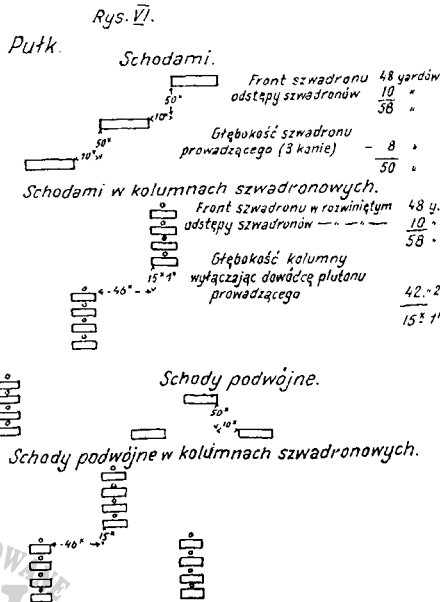 Rys. VI.
Pułk.
Schodami.
Front szwadronu 48 yardów
odstępy szwadronów 10 "
58 "
50ˣ
10ˣ
Głębokość szwadronu
prowadzącego (3 konie) - 8 "
50 "
50ˣ
10ˣ
Schodami w kolumnach szwadronowych.
Front szwadronu w rozwiniętym 48 y.
odstępy szwadronów — " — " — 10 "
58 "
Głębokość kolumny
wyłączając dowódcę plutonu
prowadzącego 42. "2
15ˣ 1'
15ˣ 1'
-46ˣ-
Schody podwójne.
50ˣ
10ˣ
Schody podwójne w kolumnach szwadronowych.
15ˣ
-46ˣ-